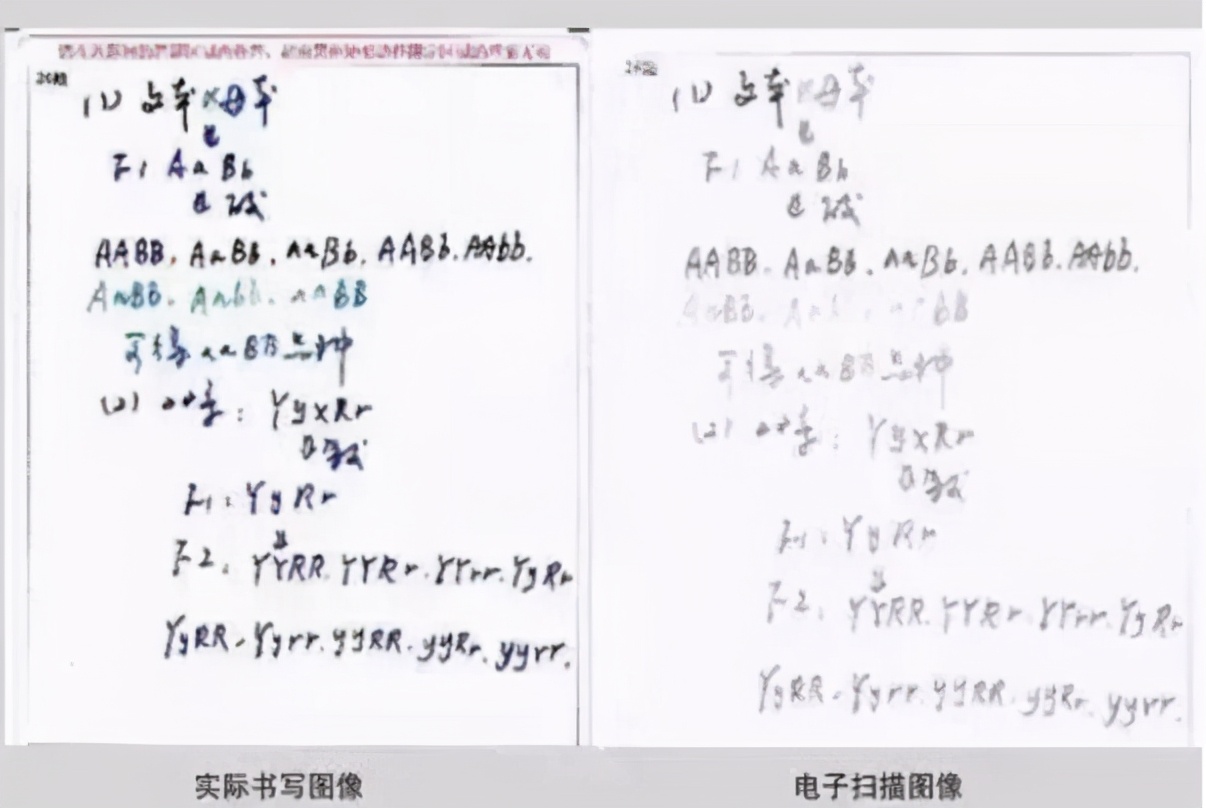 (1) 父本×母本
F1 AaBb
AABB. AaBb. aaBb. AABb. AAbb.
AaBB. Aabb. aaBB
可得aaBB品种
(2) : Yy×Rr
F1: YyRr
F2: YYRR. YYRr. YYrr. YyRr
YyRR. Yyrr. yyRR. yyRr. yyrr.
实际书写图像
(1) 父本×母本
F1 AaBb
AABB. AaBb. aaBb. AABb. AAbb.
AaBB. aaBB
可得aaBB品种
(2) : Yy×Rr
F1: YyRr
F2: YYRR. YYRr. YYrr. YyRr
YyRR. Yyrr. yyRR. yyRr. yyrr.
电子扫描图像